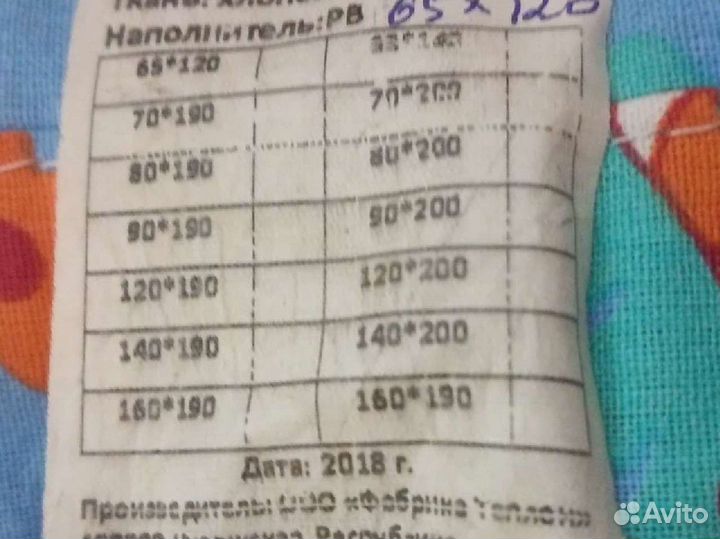 Наполнитель:РВ 65 x 120
65*120
70*190 70*200
80*190 80*200
90*190 90*200
120*190 120*200
140*190 140*200
160*190 160*190
Дата: 2018 г.
Производитель: ООО «Фабрика
Республика
Avito